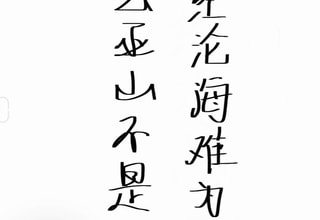 沧海难为
巫山不是